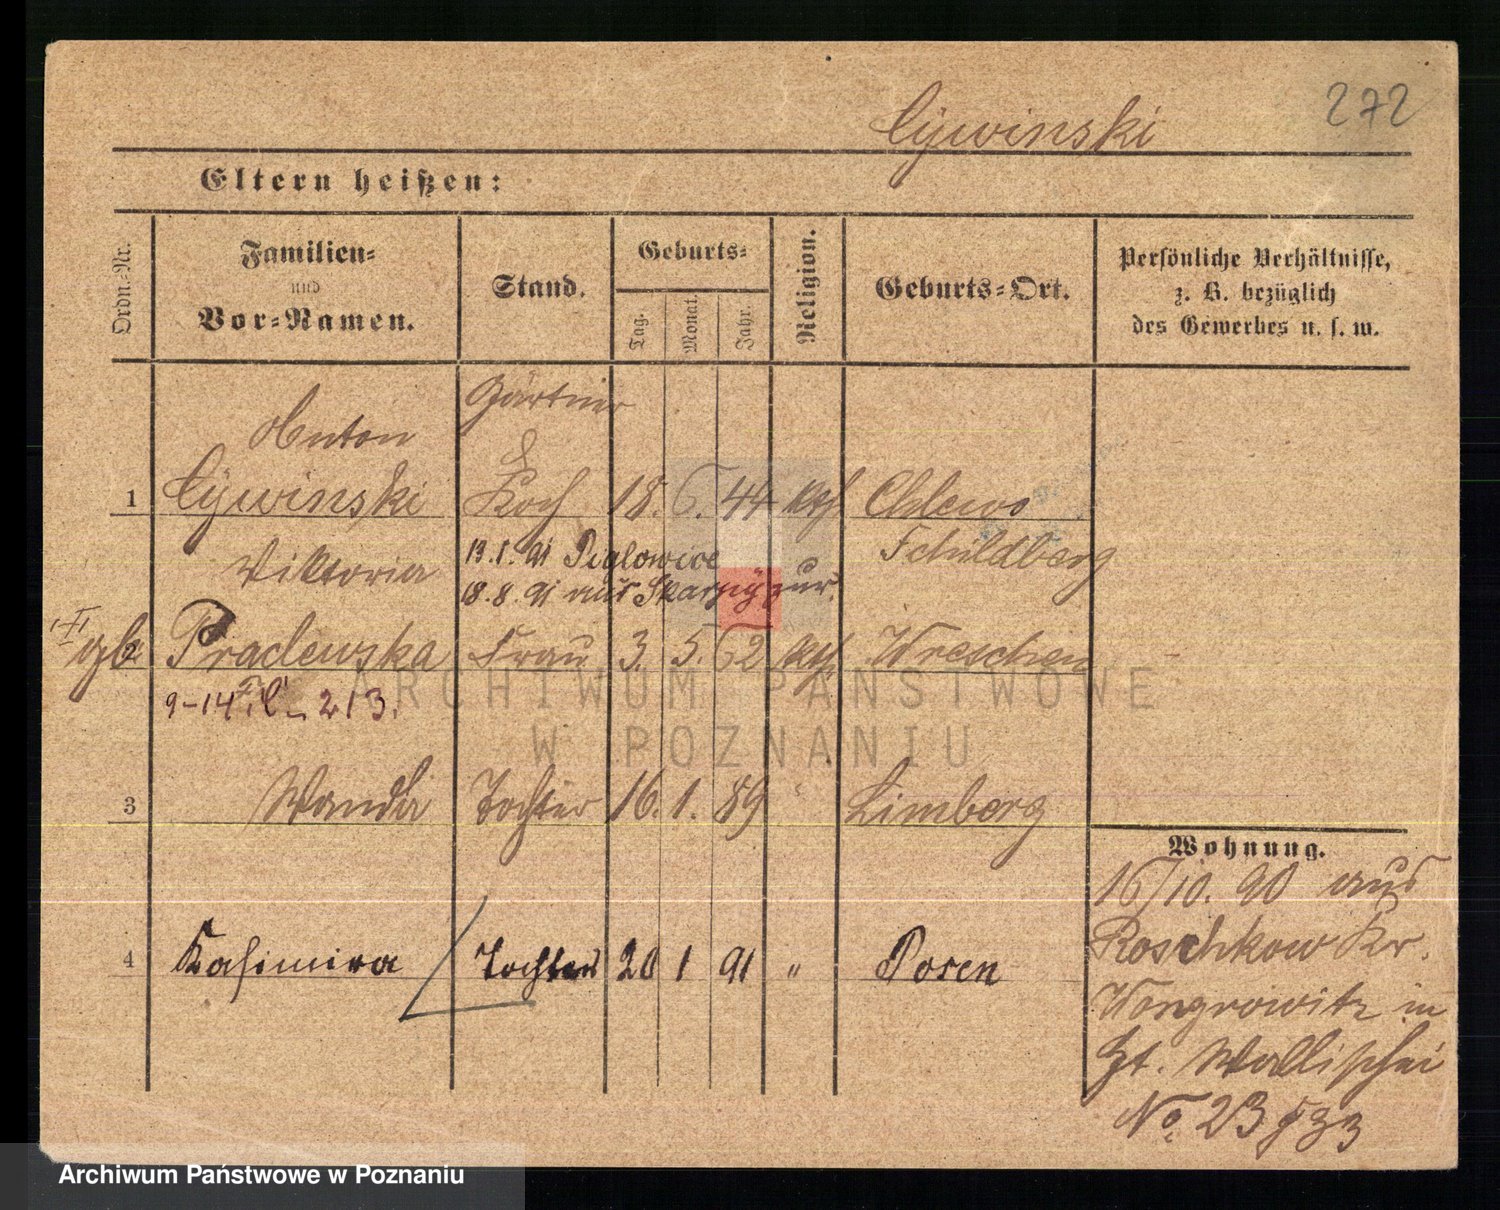 272
Cÿwinski
Eltern heißen:
Ordn.-Nr.
Familien-
und
Vor-Namen.
Stand.
Geburts-
Tag.
Monat.
Jahr.
Religion.
Geburts-Ort.
Persönliche Verhältnisse,
z. B. bezüglich
des Gewerbes u. s. w.
Gärtner
Anton
1 Cÿwinski Koch 18. 6. 44 kth Chlewo
Schildberg
Viktoria 13.1.91 Piglowice
18.8.91 aus zur.
gb 2 Pradewska Frau 3. 5. 52 kth Wreschen
9-14 213.
3 Wanda Tochter 16. 1. 89 " Limberg
Wohnung.
16/10. 90 aus
4 Kasimira Tochter 20 1 91 " Posen
Roschkow Kr.
Wongrowitz in
Zt. Wallischei
No. 23
ARCHIWUM PAŃSTWOWE
W POZNANIU
Archiwum Państwowe w Poznaniu